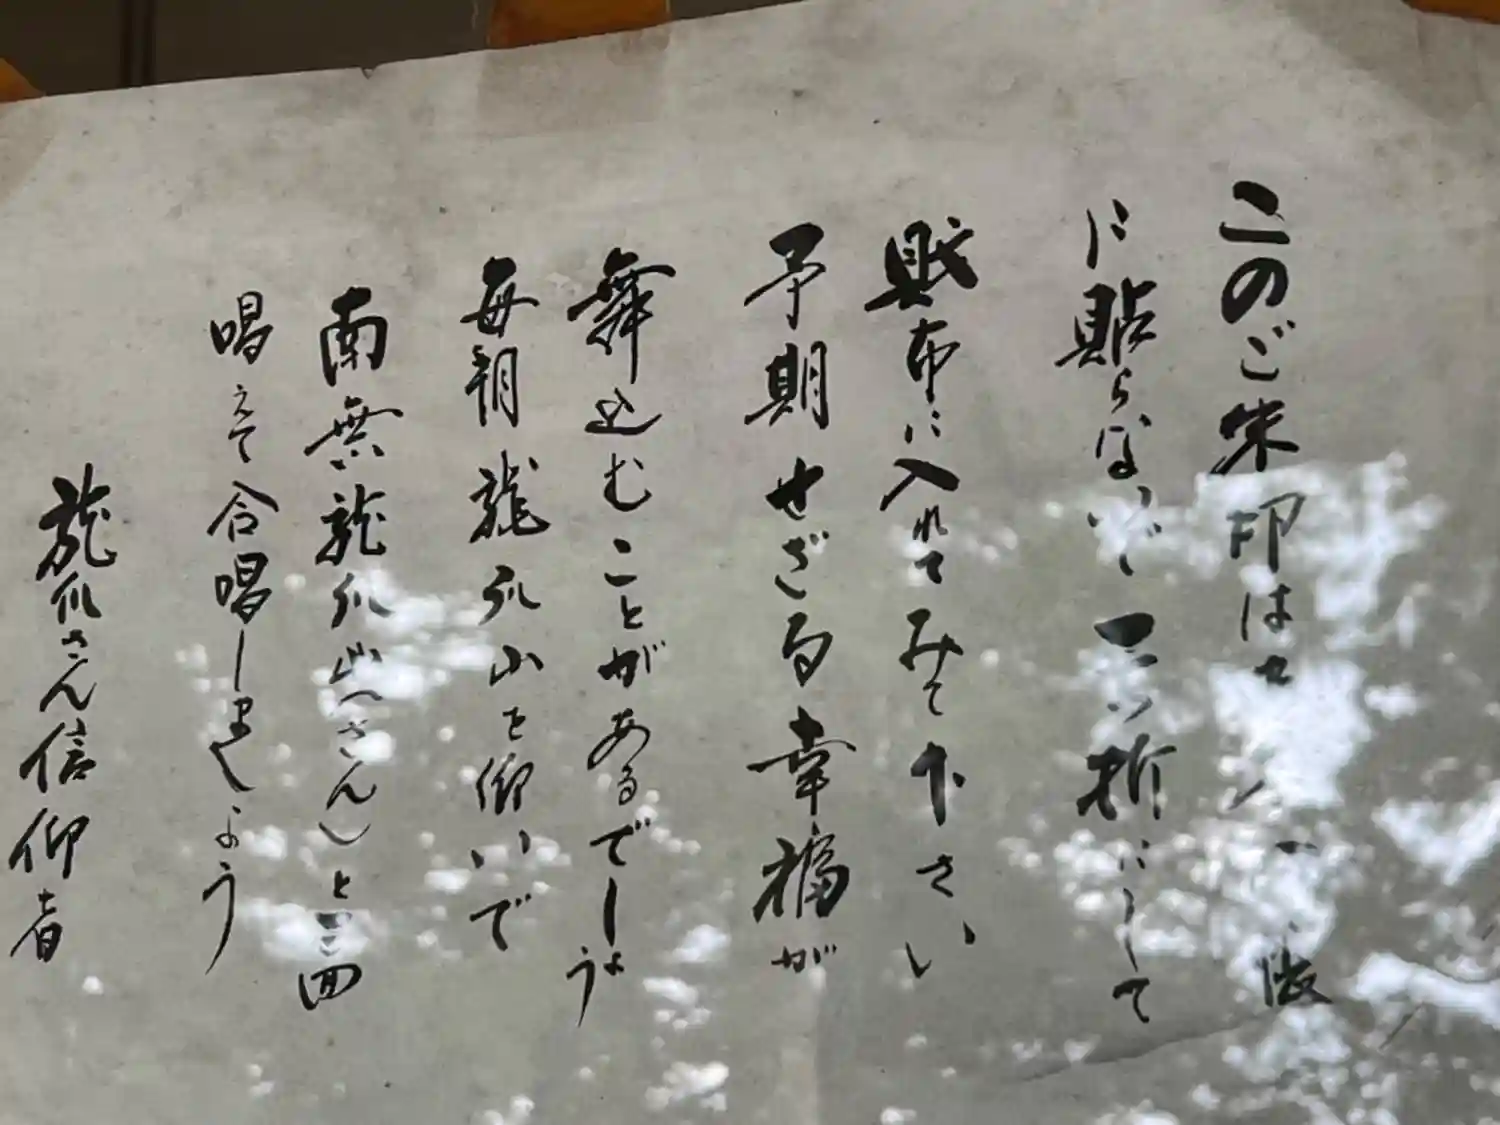 このご朱印は
に貼らないで三つ折にして
財布に入れてみて下さい
予期せざる幸福が
舞込むことがあるでしょう
毎朝龍爪山を仰いで
南無龍爪山(さん)と三回
唱えて合唱しましょう
龍爪さん信仰者